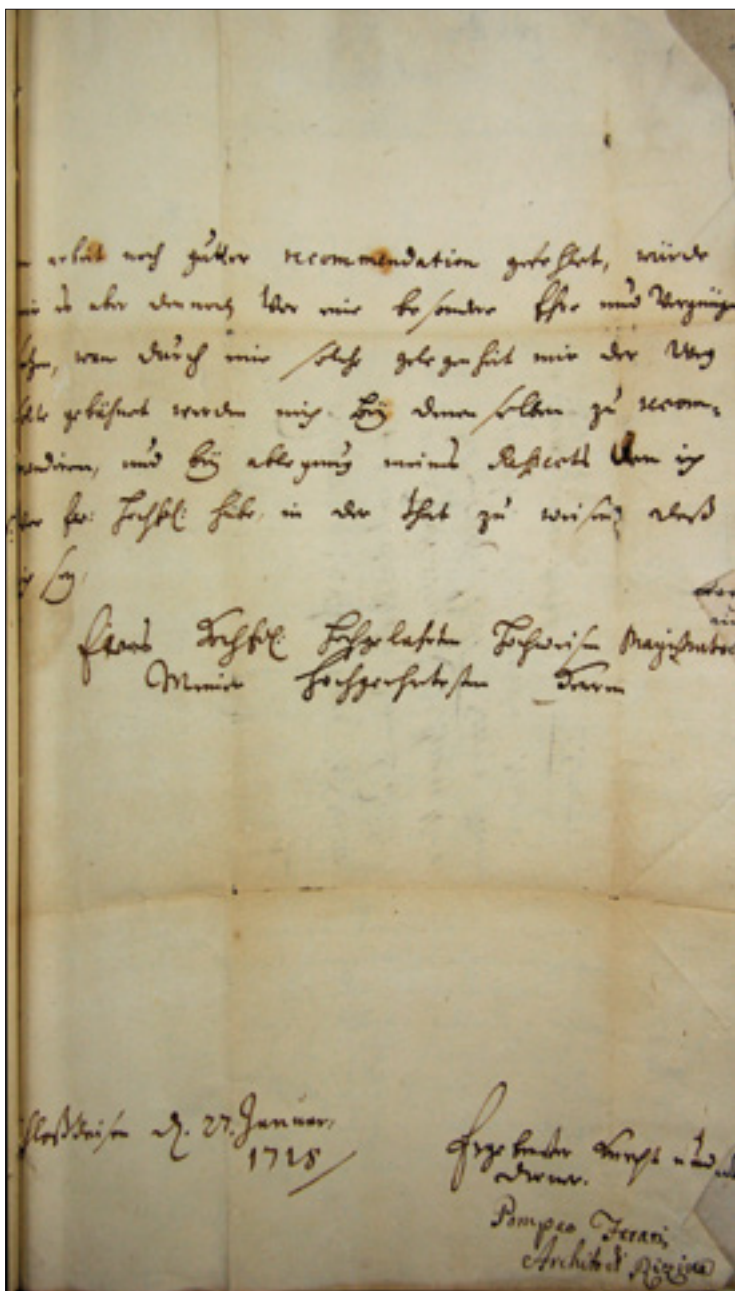 arbeit noch gutter recommendation gefehlet, würde
es aber dennoch vor mir besondere Ehre und Vergnüge
wan durch mir solche gelegenheit mir der Weg
gebähnet werden mich bey denenselben zu recom=
mendiren, und bey ablegung meines Respects den ich
vor Ew: Hochedl: habe, in der that zu weisen, daß
ich sey.
Eines HochEdl: Hochgelahrten Hochweisen Magistrats
Meiner Hochgeehrtesten Herren
d. 27. Januar:
1718
Ergebenster Knecht und
diener.
Pompeo Ferari,
Architect